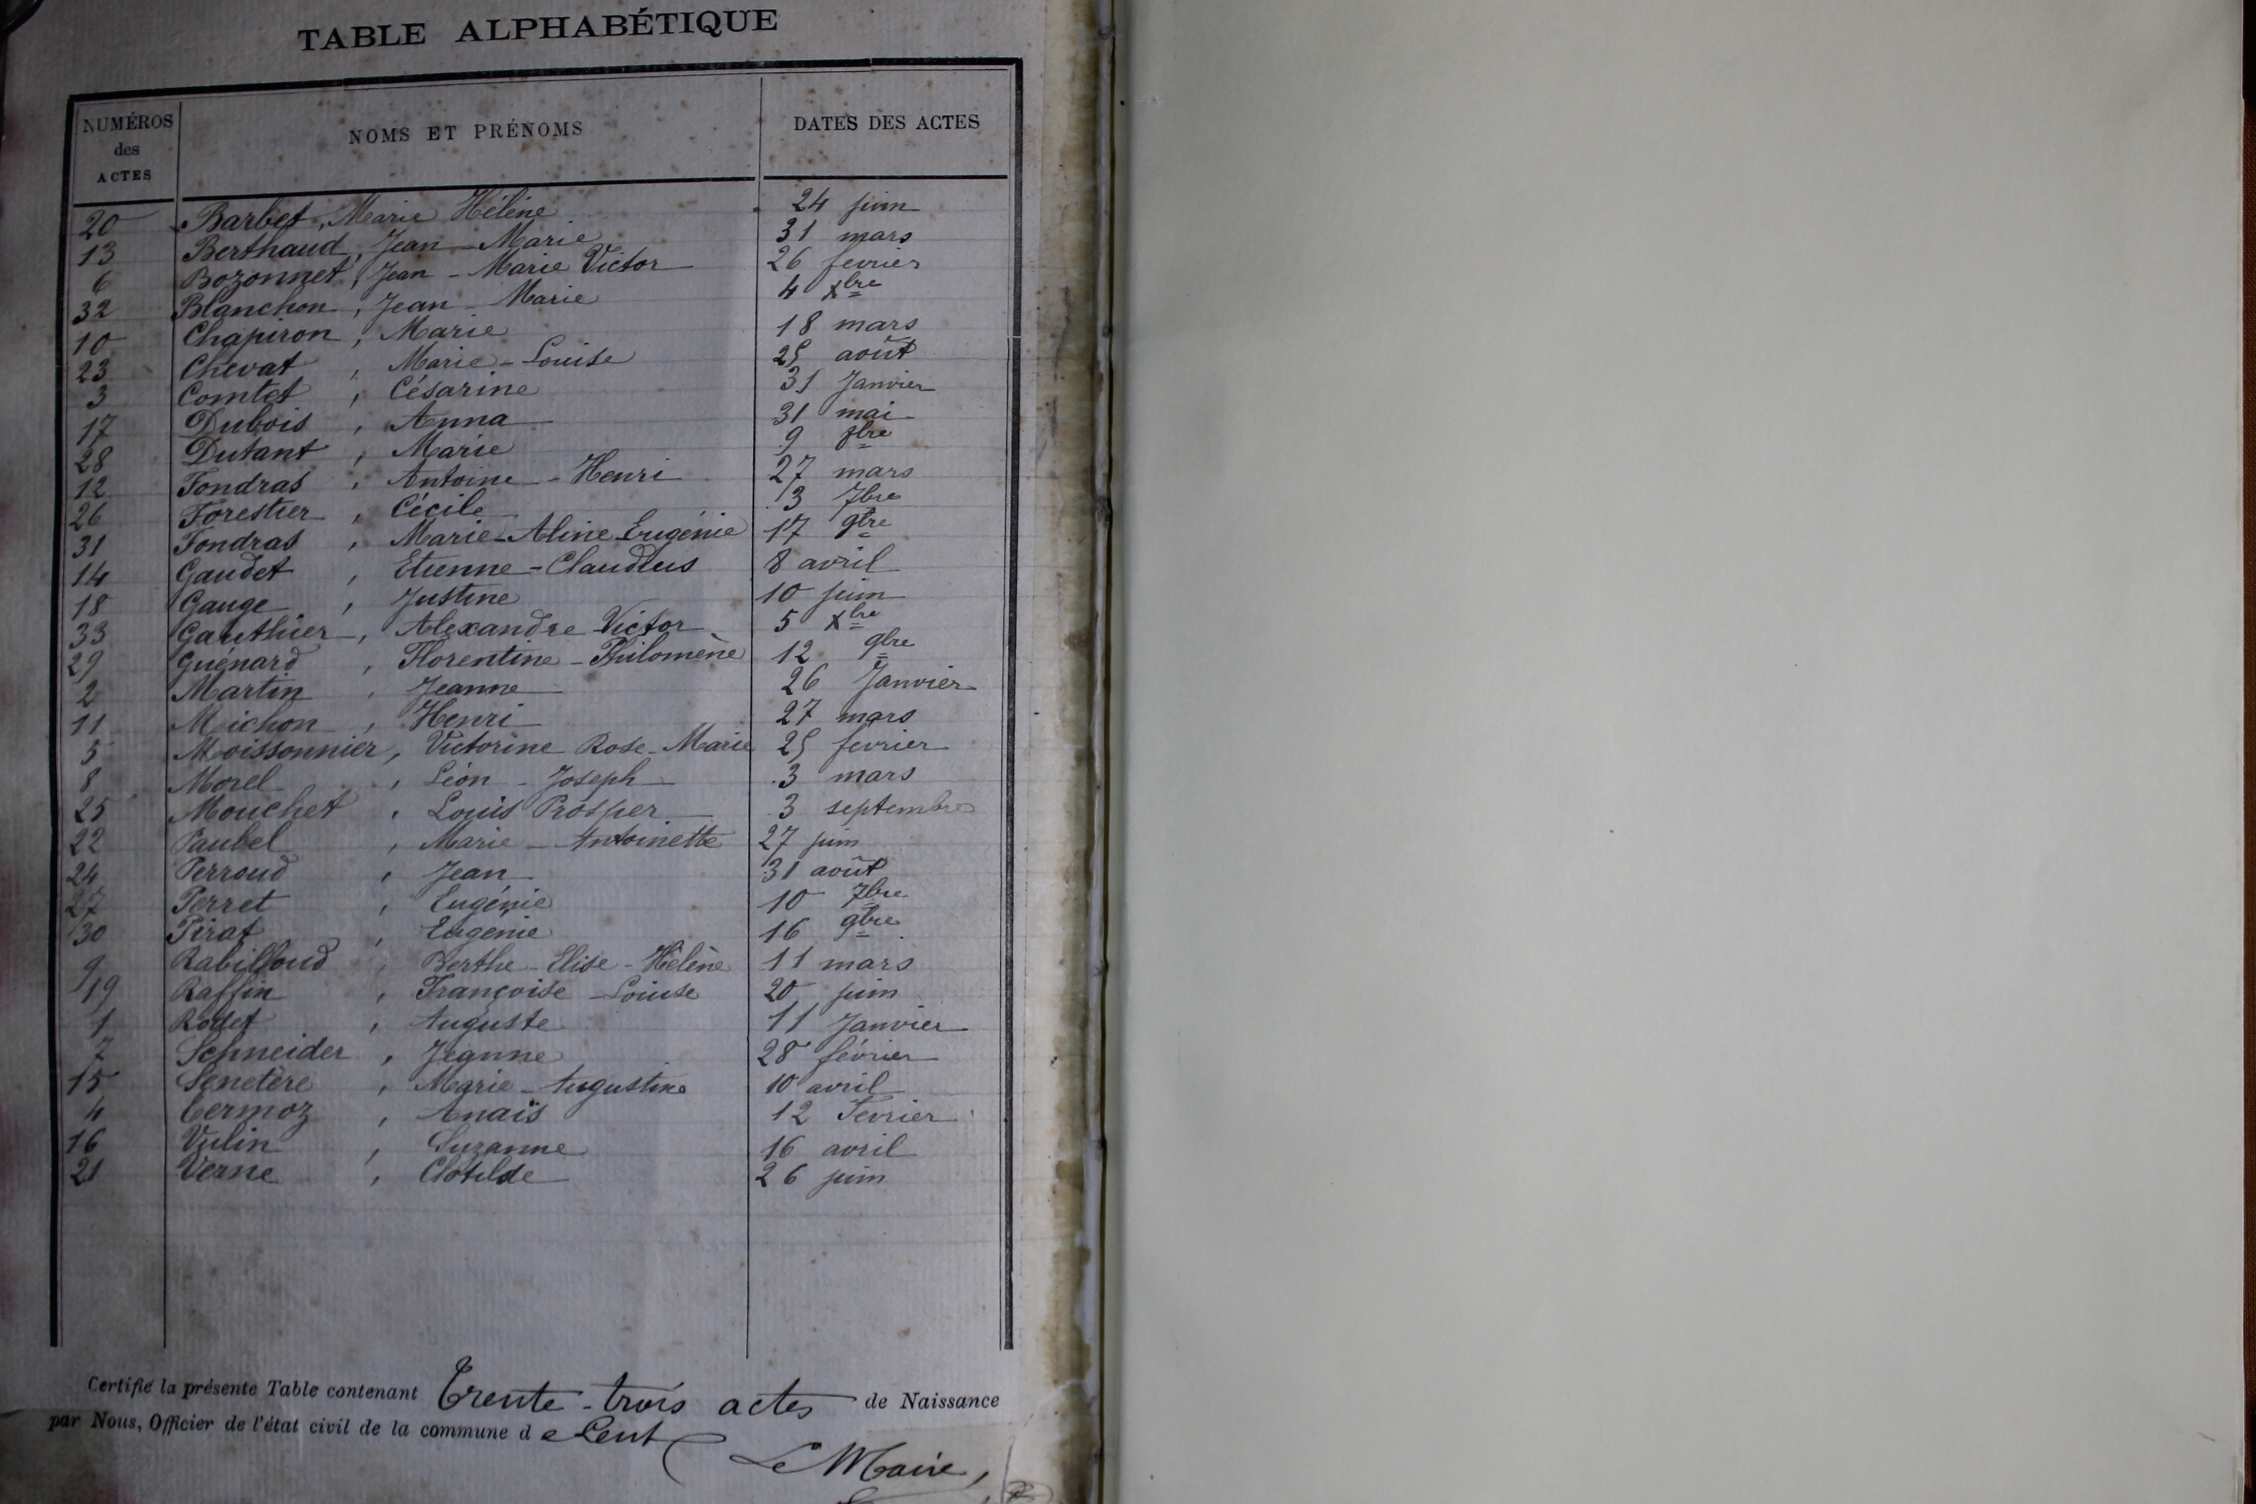 TABLE ALPHABÉTIQUE
NUMÉROS des ACTES NOMS ET PRÉNOMS DATES DES ACTES
20 Barbet, Marie Hélène 24 juin
13 Berthaud, Jean-Marie 31 mars
6 Bozonnet, Jean-Marie Victor 26 fevrier
32 Blanchon, Jean-Marie 4 Xbre
10 Chapiron, Marie 18 mars
23 Chevat, Marie-Louise 25 août
3 Comtet, Césarine 31 Janvier
17 Dubois, Anna 31 mai
28 Dutant, Marie 9 8bre
12 Fondras, Antoine-Henri 27 mars
26 Forestier, Cécile 3 7bre
31 Fondras, Marie-Aline Eugénie 17 9bre
14 Gaudet, Etienne-Claudius 8 avril
18 Gauge, Justine 10 juin
33 Gauthier, Alexandre Victor 5 Xbre
29 Guénard, Florentine-Philomène 12 9bre
2 Martin, Jeanne 26 Janvier
11 Michon, Henri 27 mars
5 Moissonnier, Victorine Rose-Marie 25 fevrier
8 Morel, Léon-Joseph 3 mars
25 Mouchet, Louis Prosper 3 septembre
22 Paubel, Marie-Antoinette 27 juin
24 Perroud, Jean 31 août
27 Perret, Eugénie 10 7bre
30 Pirat, Eugénie 16 9bre
9 Rabilloud, Berthe-Elise-Hélène 11 mars
19 Raffin, Françoise-Louise 20 juin
1 Rodet, Auguste 11 Janvier
7 Schneider, Jeanne 28 février
15 Senetère, Marie-Augustine 10 avril
4 Termoz, Anaïs 12 Fevrier
16 Vulin, Suzanne 16 avril
21 Verne, Clotilde 26 juin
Certifié la présente Table contenant Trente-trois actes de Naissance
par Nous, Officier de l'état civil de la commune de Lent
Le Maire,